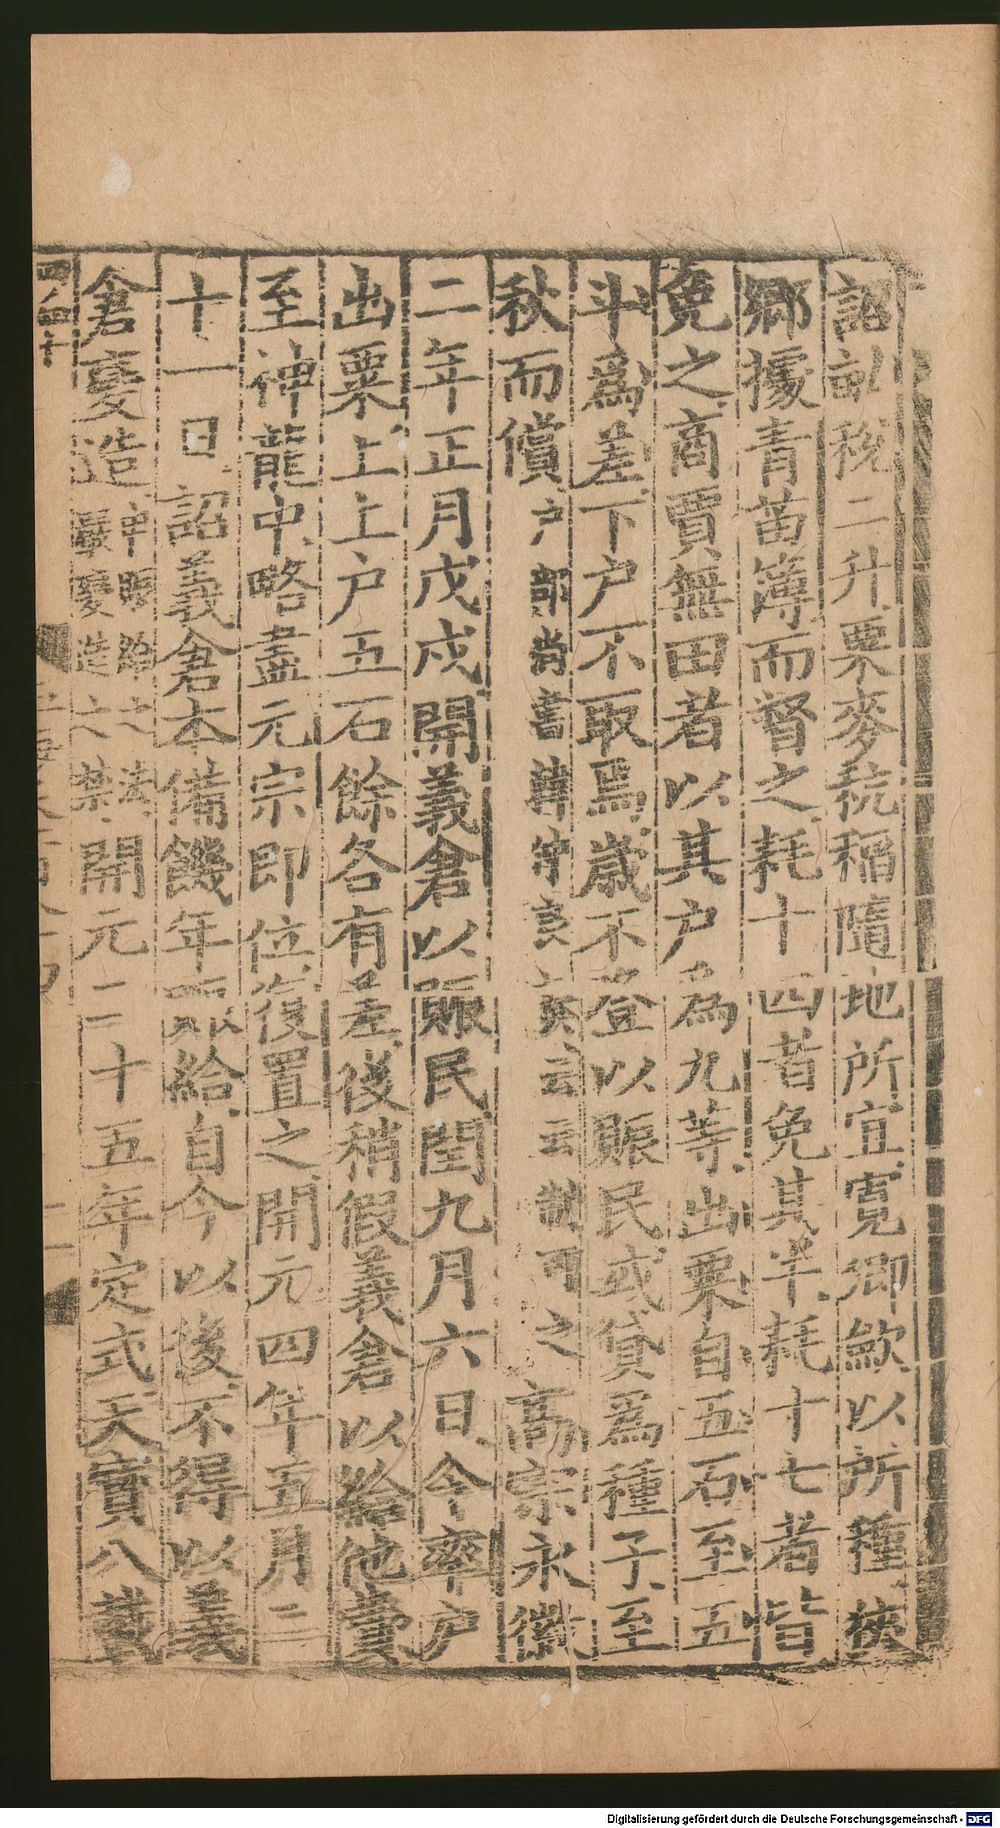 詔畝稅二升粟麥秔稻隨地所宜寬鄉斂以所種狹
鄉據青苗簿而督之耗十四者免其半耗十七者皆
免之商賈無田者以其户爲九等出粟自五石至五
斗爲差下户不取焉歲不登以賑民或貸爲種子至
秋而償户部尚書 奏云云制可之高宗永徽
二年正月戊戌開義倉以賑民閏九月六日令率户
出粟上上户五石餘各有差後稍假義倉以給他費
至神龍中略盡元宗即位復置之開元四年五月二
十一日詔義倉本備饑年賑給自今以後不得以義
倉變造申賑給之法
嚴變造之禁開元二十五年定式天寶八載
四八四十
Digitalisierung gefördert durch die Deutsche Forschungsgemeinschaft - DFG